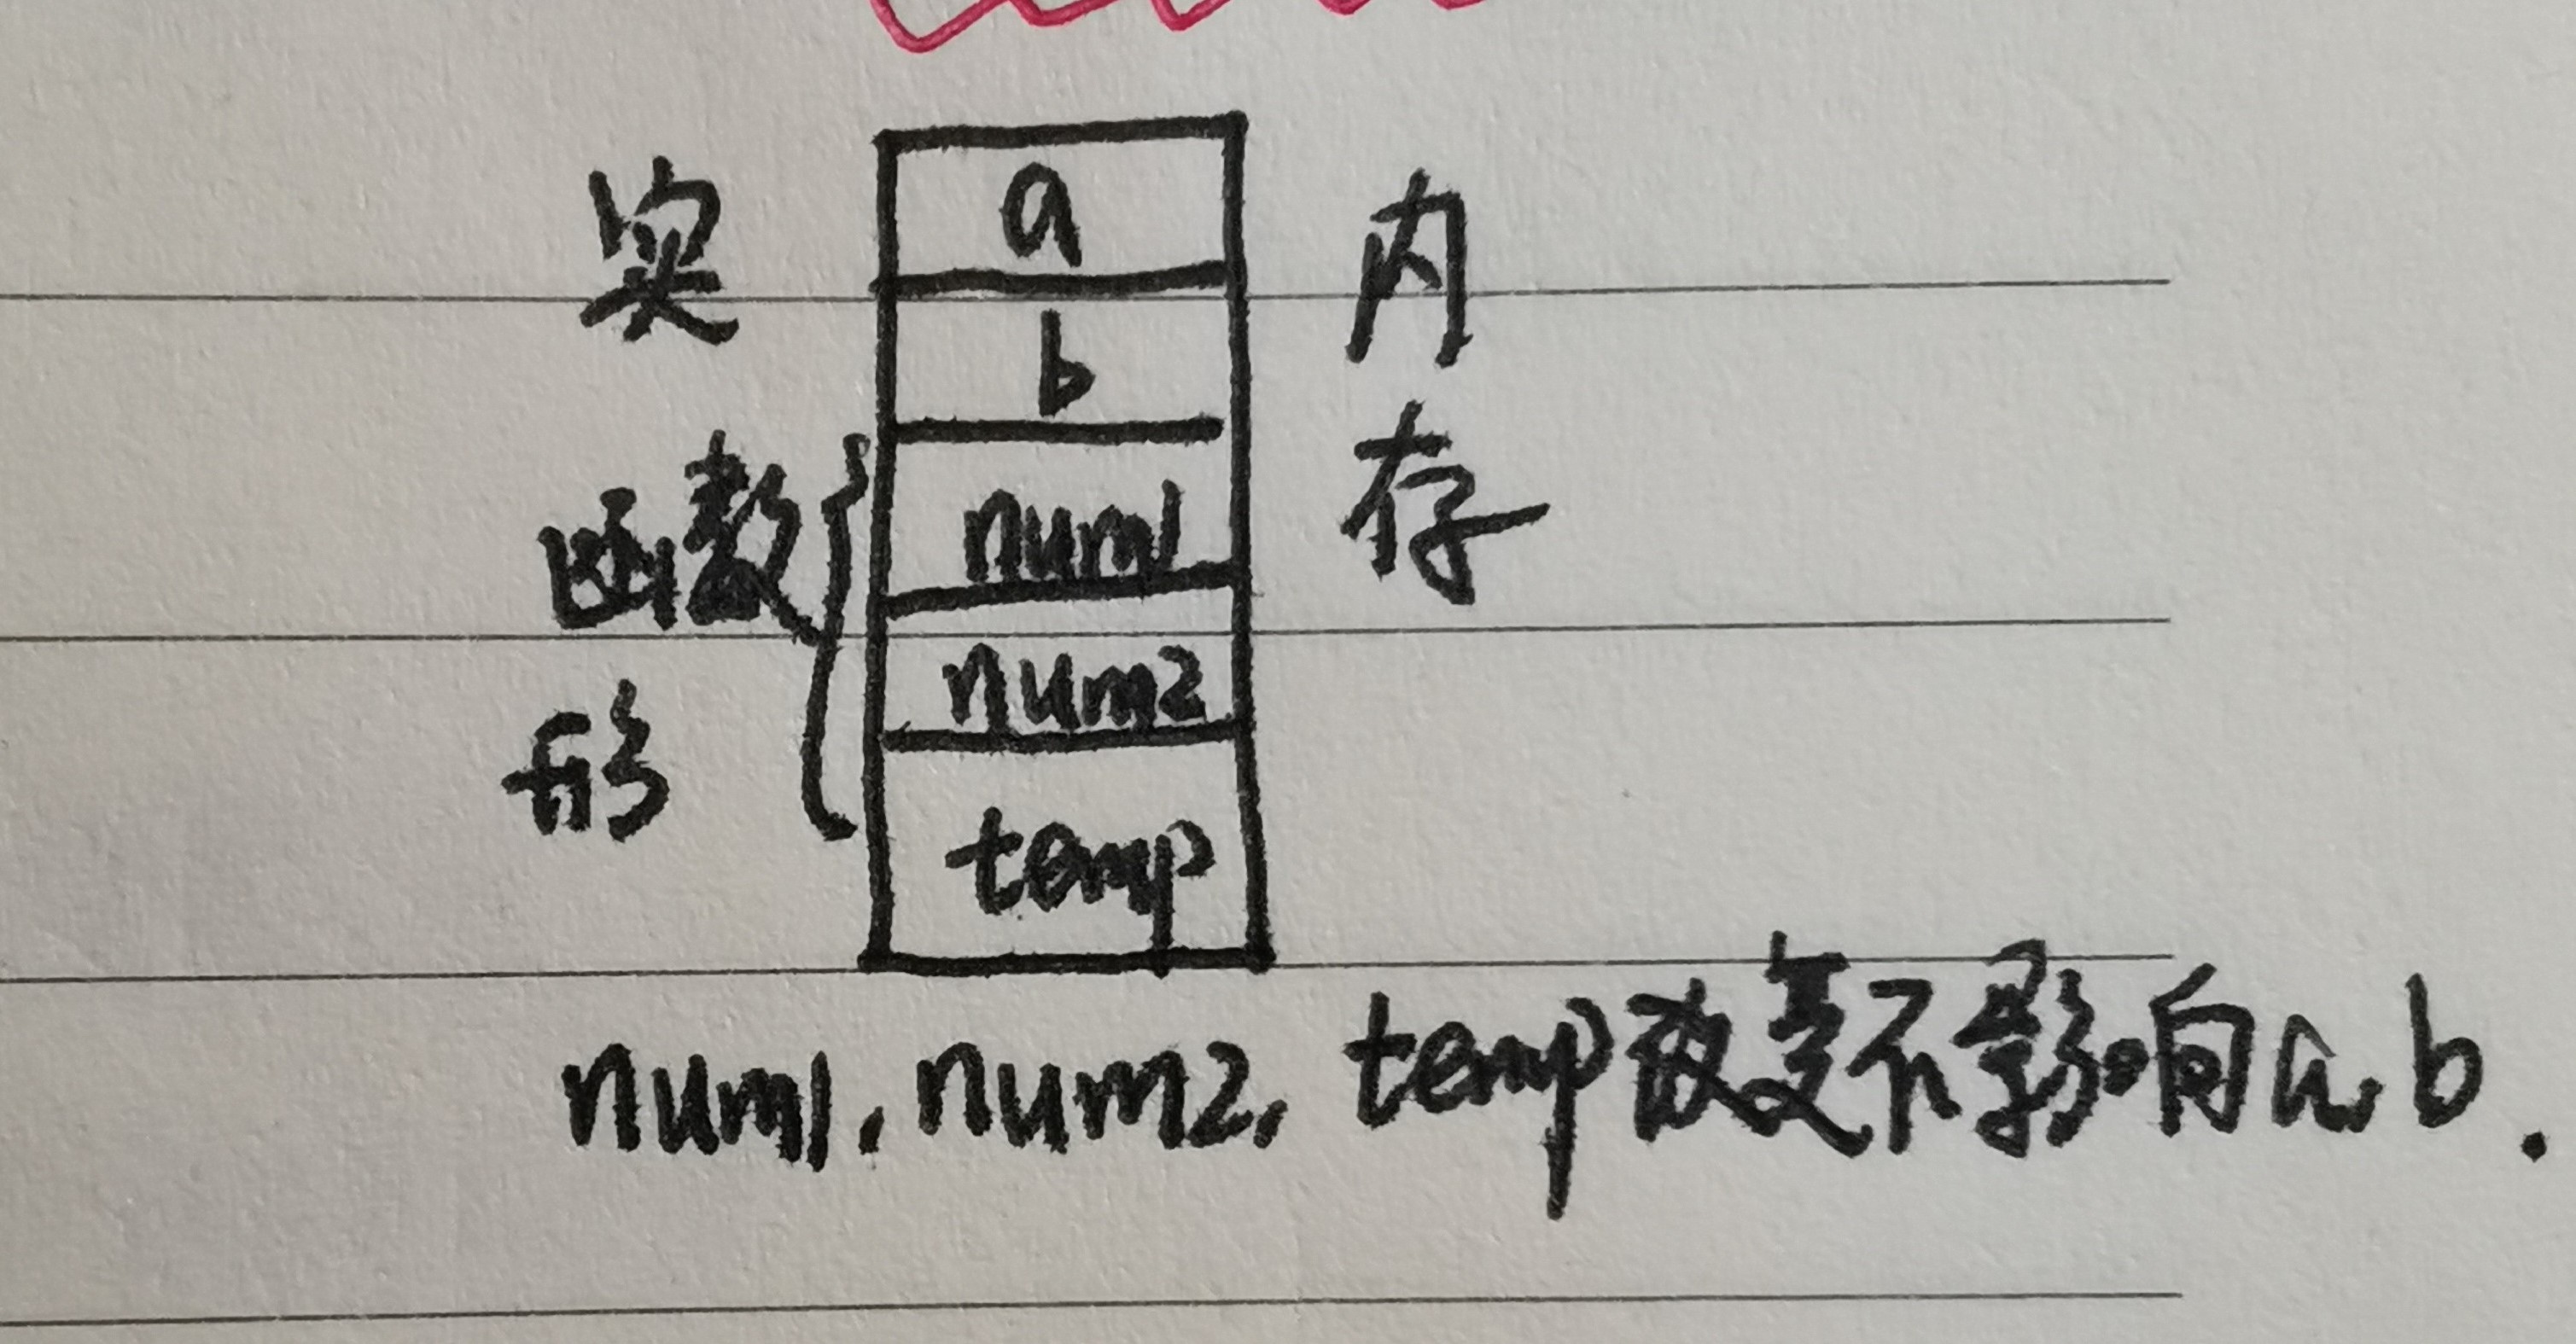 实 a 内
b
函数 num1 存
num2
形
temp
num1, num2, temp改变不影响a, b.